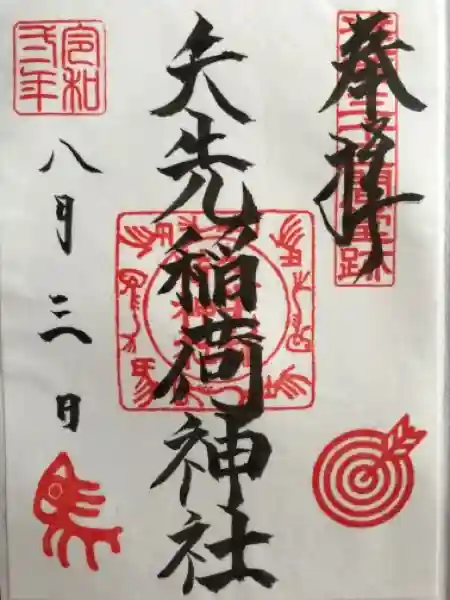 奉拝
矢先稲荷神社
令和
弐年
八月三日